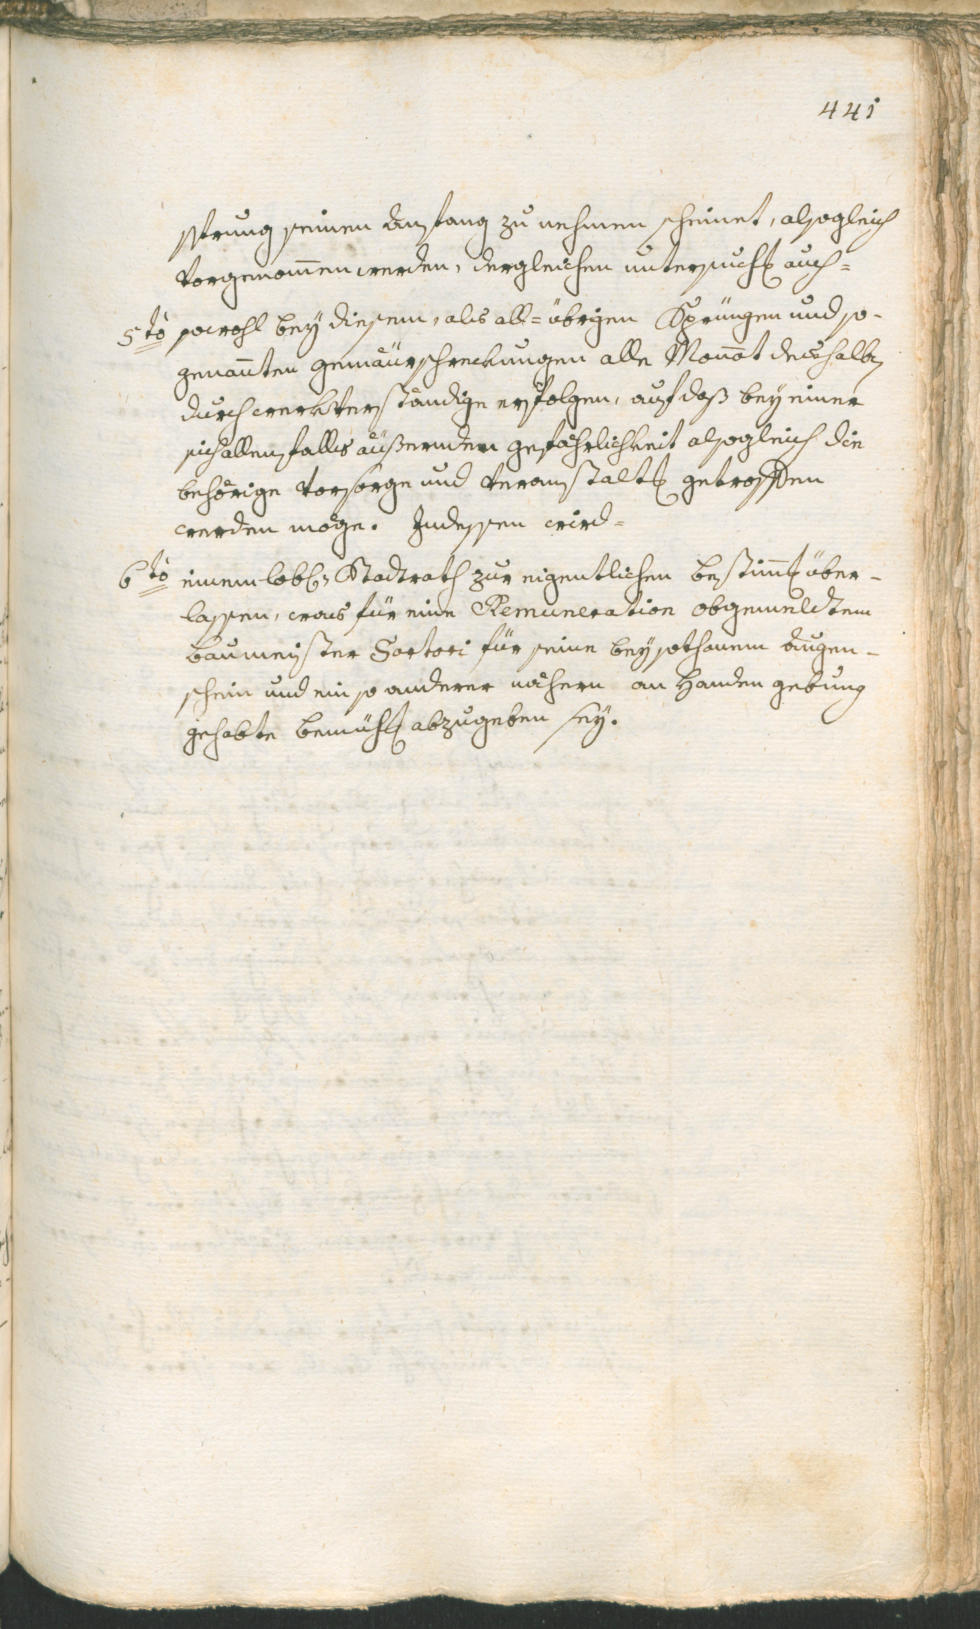 441
sprung seinen Anfang zu nehmen scheinet, alsogleich
vorgenom̄en werden, dergleichen untersuch[ung] auch=
5to sowohl bey diesem, als all= übrigen Sprüngen und so-
genan̄ten gemäur schreckungen alle Monat deshalb[en]
durch werkverständige erfolgen, auf daß bey einer
sich allenfalls äußernden gefährlichkeit alsogleich die
behörige Vorsorge und Veranstalt[ung] getroffen
werden möge. Indessen wird=
6to einem löbl. Stadtrath zur eigentlichen bestim̄[ung] über-
lassen, was für eine Remuneration obgemeldtem
baumeister Sartori für seine bey sothanem augen-
schein und ein so anderer nähern an Handen gebung
gehabte bemüh[ung] abzugeben sey.